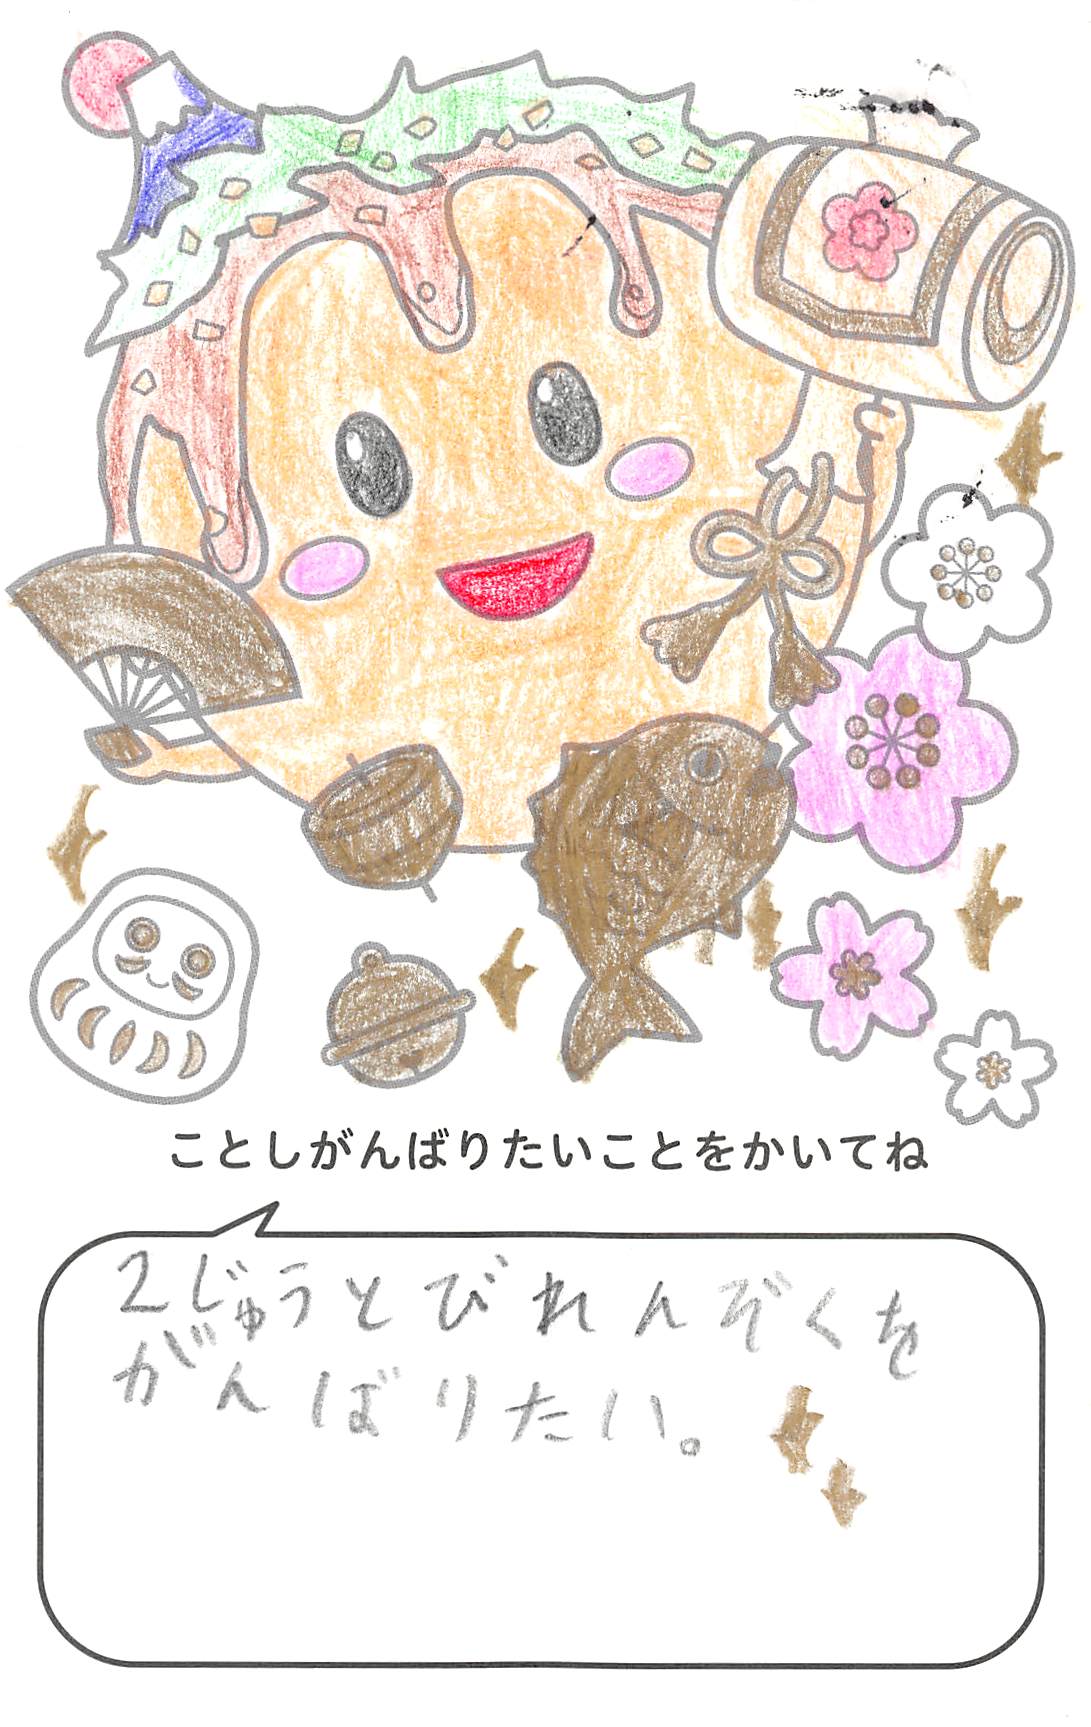 ことしがんばりたいことをかいてね
2じゅうとびれんぞくを
がんばりたい。